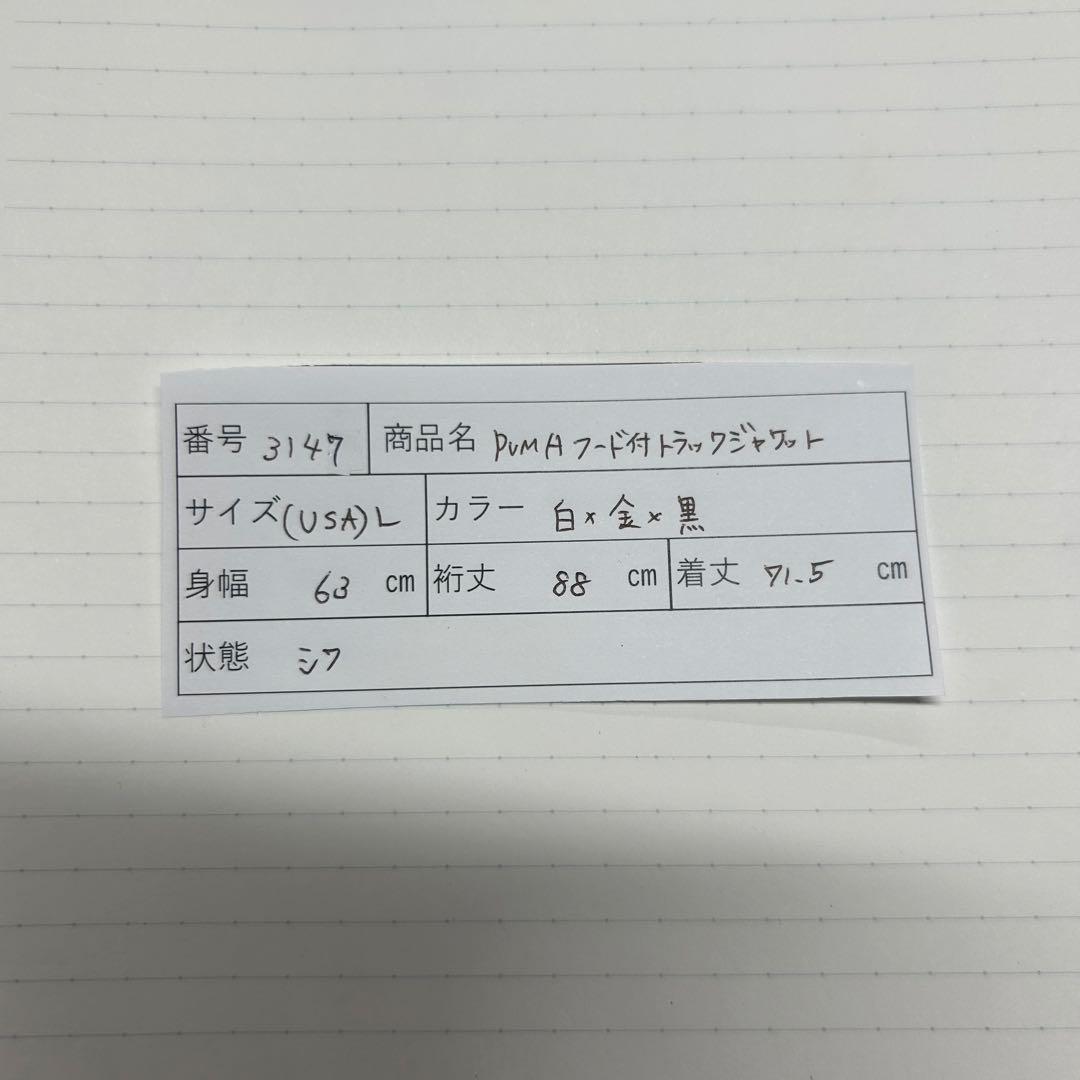 番号 3147 商品名 PUMA フード付トラックジャケット
サイズ (USA) L カラー 白×金×黒
身幅 63 cm 裄丈 88 cm 着丈 71.5 cm
状態 シワ